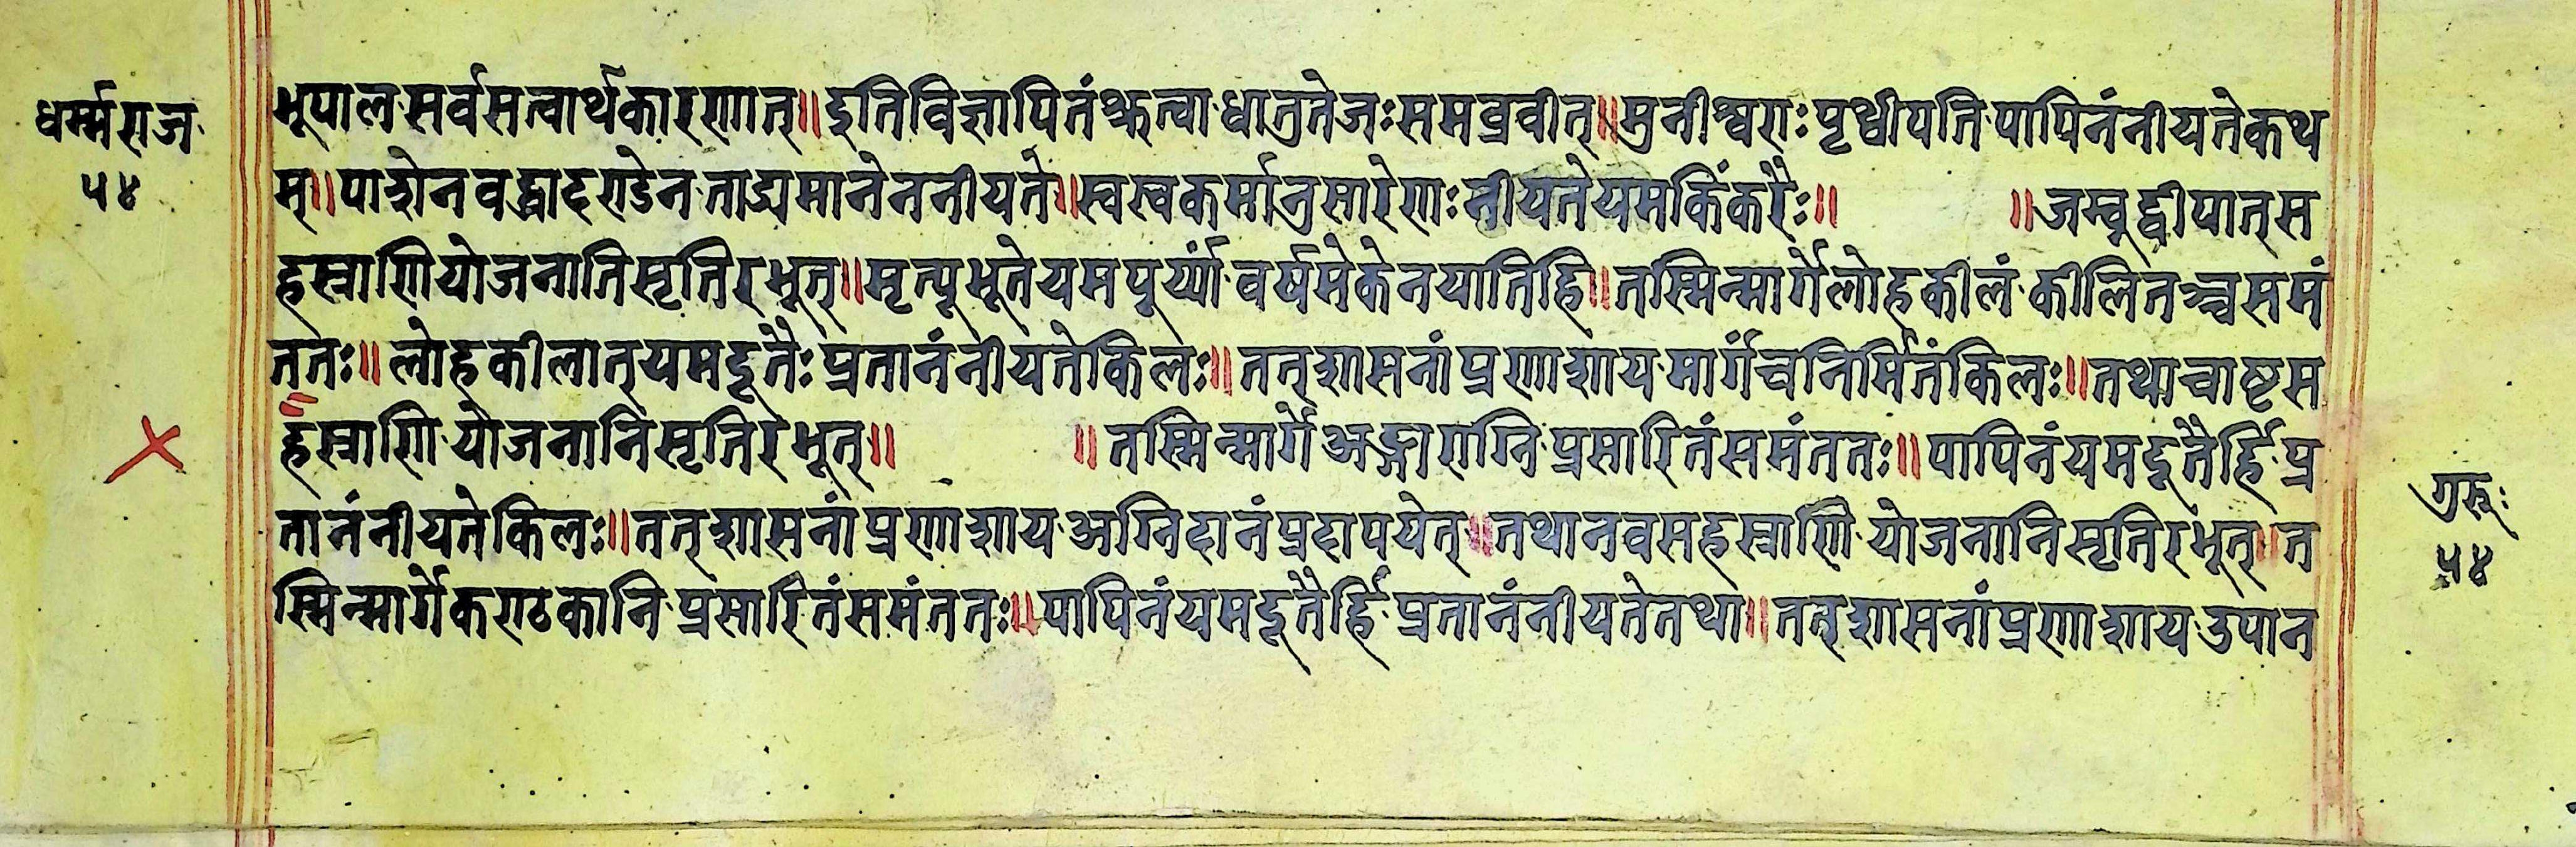 धर्म्मराज
५४
भूपाल॰सर्वसत्वार्थकारणात्॥इतिविज्ञापितंश्रुत्वा॰धात्रुतेजःसमब्रवीत्॥मुनीश्वराःपृथ्वीपति॰पापिनंनीयतेकथ
म्॥पाशेनवद्ध्वादण्डेन॰ताड्यमानेननीयते॥स्वस्वकर्मानुसारेणःनीयतेयमकिंकरैः॥ ॥जम्बूद्वीपात्स
हस्राणियोजनातिसृतिरभूत्॥मृत्यूभूतेयमपूर्य्यां॰वर्षमेकेनयातिहि॥तस्मिन्मार्गेलोहकीलं॰कीलितञ्चसमं
ततः॥लोहकीलात्यमदूतैःप्रतानंनीयतेकिलः॥तत्शासनांप्रणाशाय॰मार्गंचनिर्मितंकिलः॥तथाचाष्टस
हस्राणि॰योजनानिसृतिरभूत्॥ ॥तस्मिन्मार्गेअङ्गाराग्नि॰प्रसारितंसमंततः॥पापिनंयमदूतैर्हि॰प्र
तानंनीयतेकिलः॥तत्शासनांप्रणाशाय॰अग्निदानंप्रदापयेत्॥तथानवसहस्राणि॰योजनानिसृतिरभूत्॥त
स्मिन्मार्गेकण्ठकानि॰प्रसारितंसमंततः॥पापिनंयमदूतैर्हि॰प्रतानंनीयतेतथा॥तत्शासनांप्रणाशाय॰उपान
गुरूः
५४